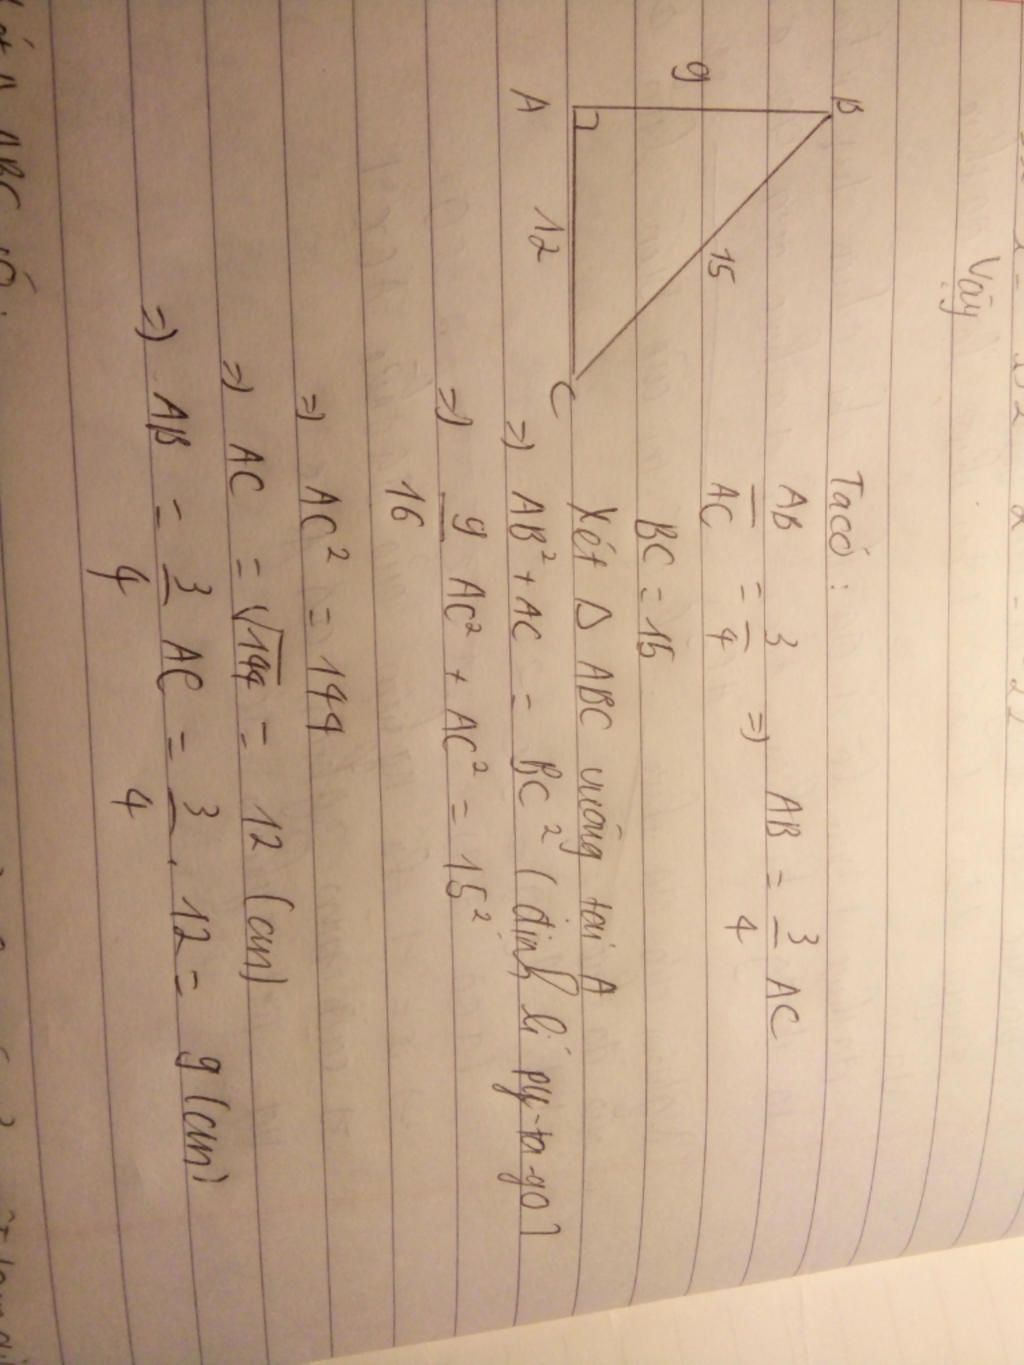 Vậy
B
9
15
A
12
C
Ta có :
AB/AC = 3/4 => AB = 3/4 AC
BC = 15
Xét Δ ABC vuông tại A
=> AB² + AC = BC² (định lí py-ta-go)
=> 9/16 AC² + AC² = 15²
=> AC² = 144
=> AC = √144 = 12 (cm)
=> AB = 3/4 AC = 3/4 . 12 = 9 (cm)
Δ ABC có :